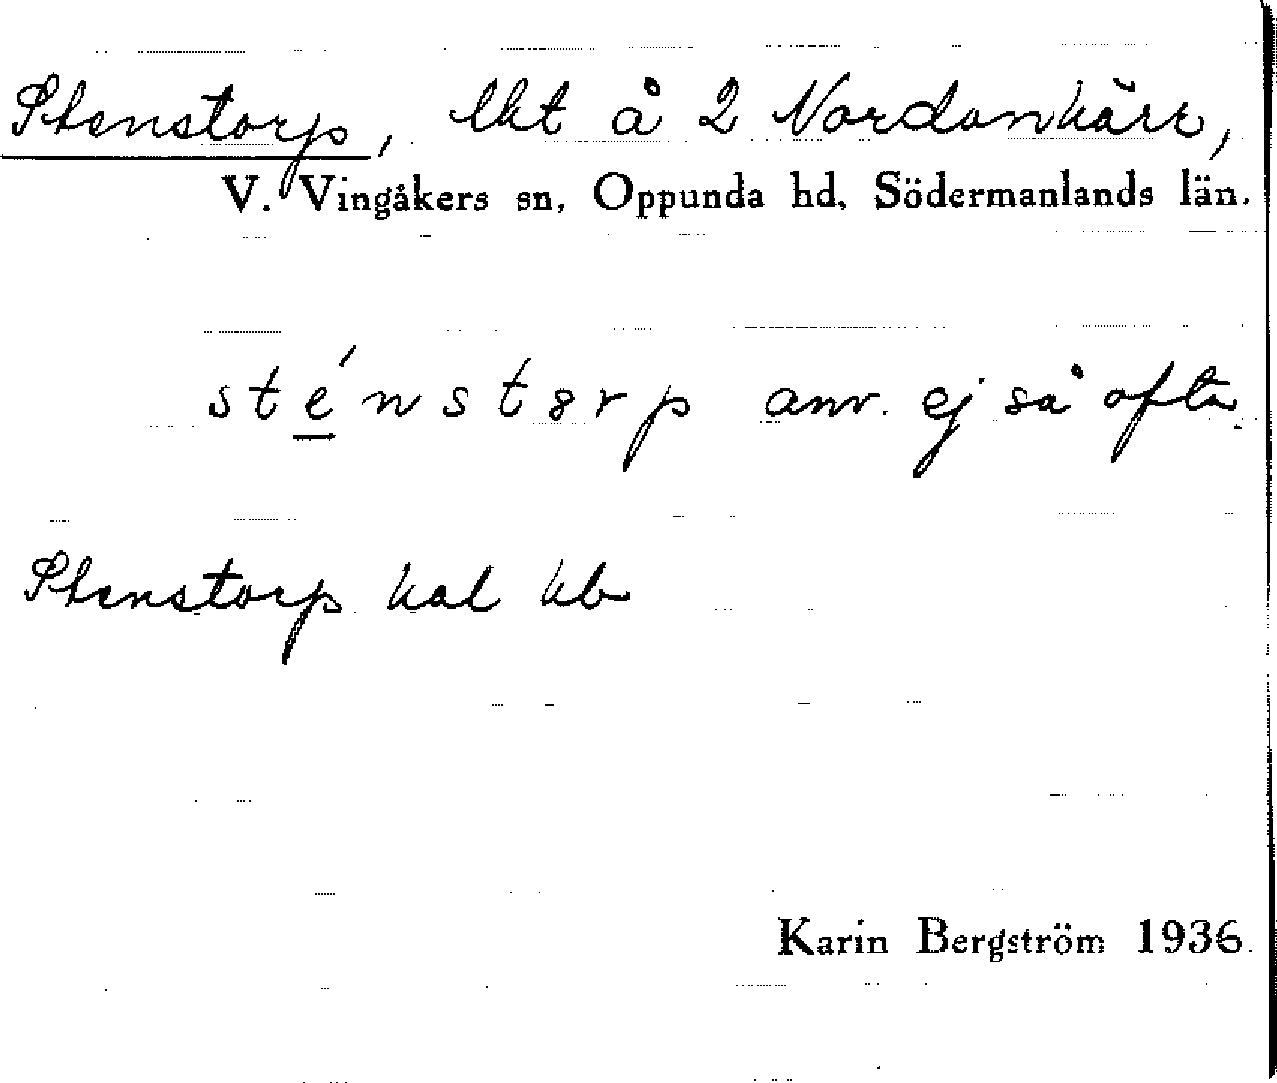 Stenstorp, lht å 2 Nordankärr,
V. Vingåkers sn, Oppunda hd, Södermanlands län.
sténstørp anv. ej så ofta
Stenstorp hal kb
Karin Bergström 1936.